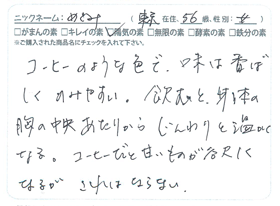 ニックネーム: めぐみ (東京 在住、56歳、性別: 女)
□がまんの素 □キレイの素 ☑陽気の素 □無限の素 □酵素の素 □鉄分の素
※ご購入された商品名にチェックを入れて下さい。
コーヒーのような色で、味は香ば
しくのみやすい。飲むと、身体の
胸の中央あたりからじんわりと温かく
なる。コーヒーだと甘いものが欲しく
なるが これはならない。